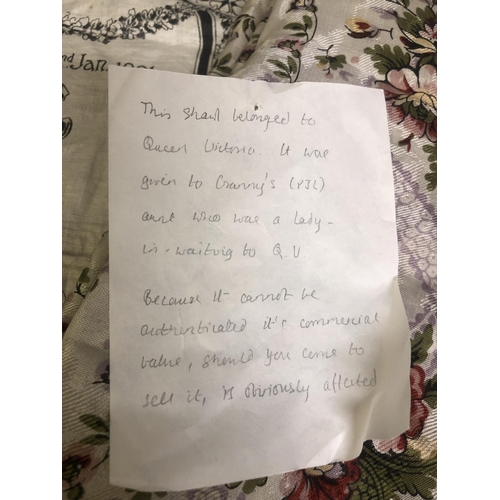 nd Jan. 1901
This shawl belonged to
Queen Victoria. It was
given to Granny's (PJL)
aunt who was a lady-
in-waiting to Q.V.
Because it cannot be
authenticated it's commercial
value, should you come to
sell it, is obviously affected